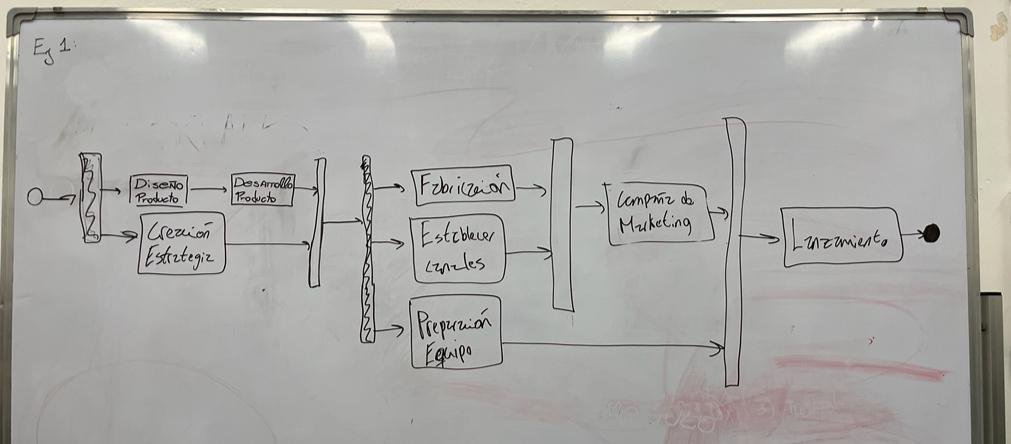 Ej 1:
Diseño
Producto
Desarrollo
Producto
Creación
Estrategia
Fabricación
Establecer
canales
Preparación
Equipo
Campaña de
Marketing
Lanzamiento